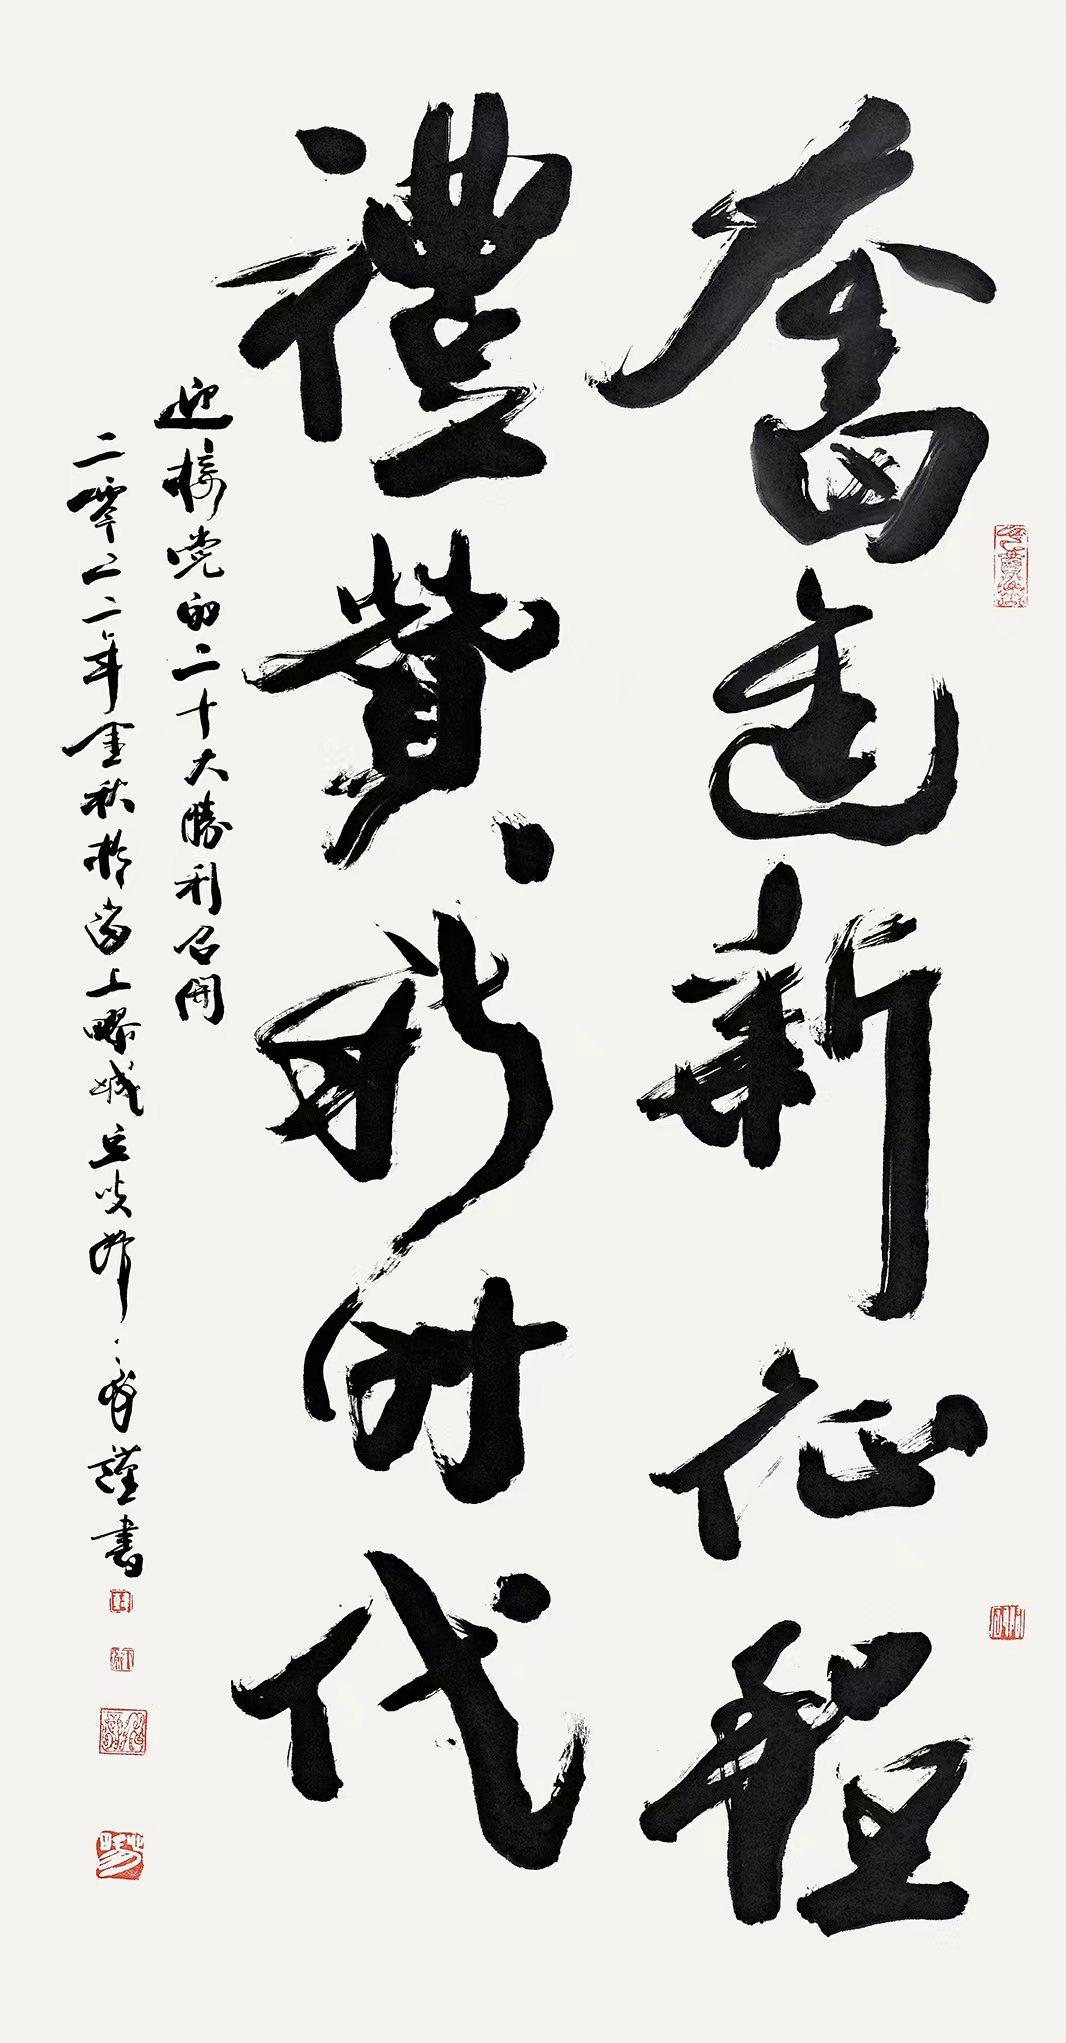 奮進新征程
禮贊新時代
迎接党的二十大勝利召開
二零二二年金秋於海上
謹書